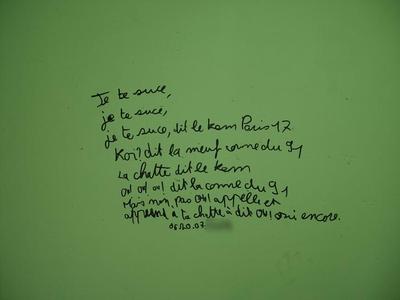 Je te suce,
je te suce,
je te suce, dit le kem Paris 17.
Koi? dit la meuf conne du 91
La chatte dit le kem
oui oui oui! dit la conne du 91
Mais non, pas oui! appelle et
apprend à ta chatte à dit oui! oui encore.
06.20.07